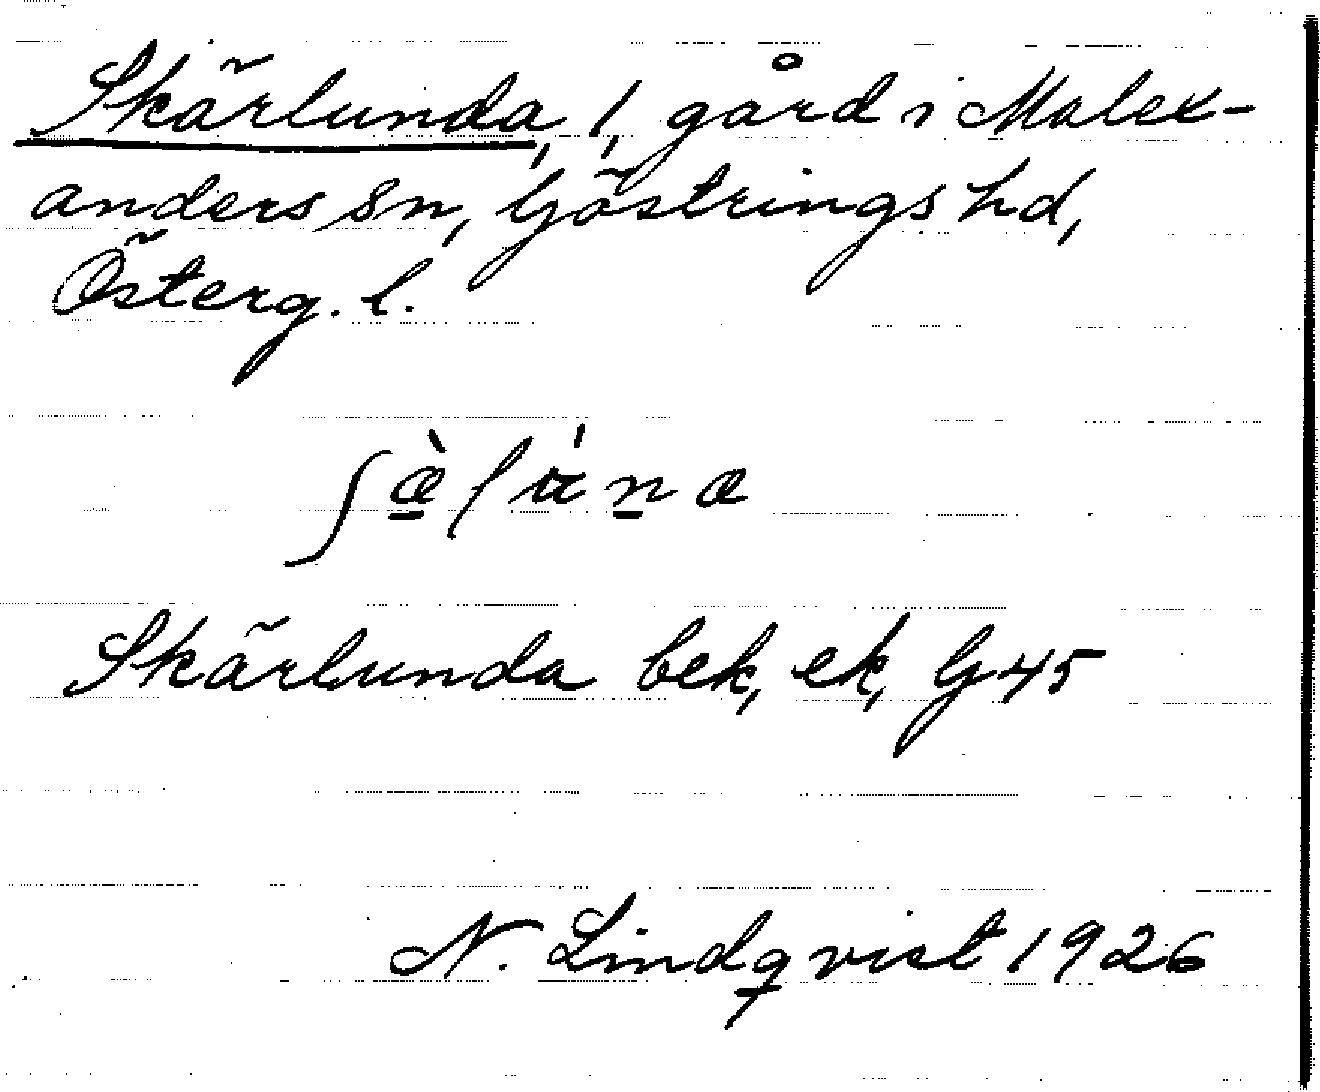 Skärlunda, 1, gård i Malex-
anders sn, Göstrings hd,
Österg. l.
Skärlunda bek, ek, G 45
N. Lindqvist 1926